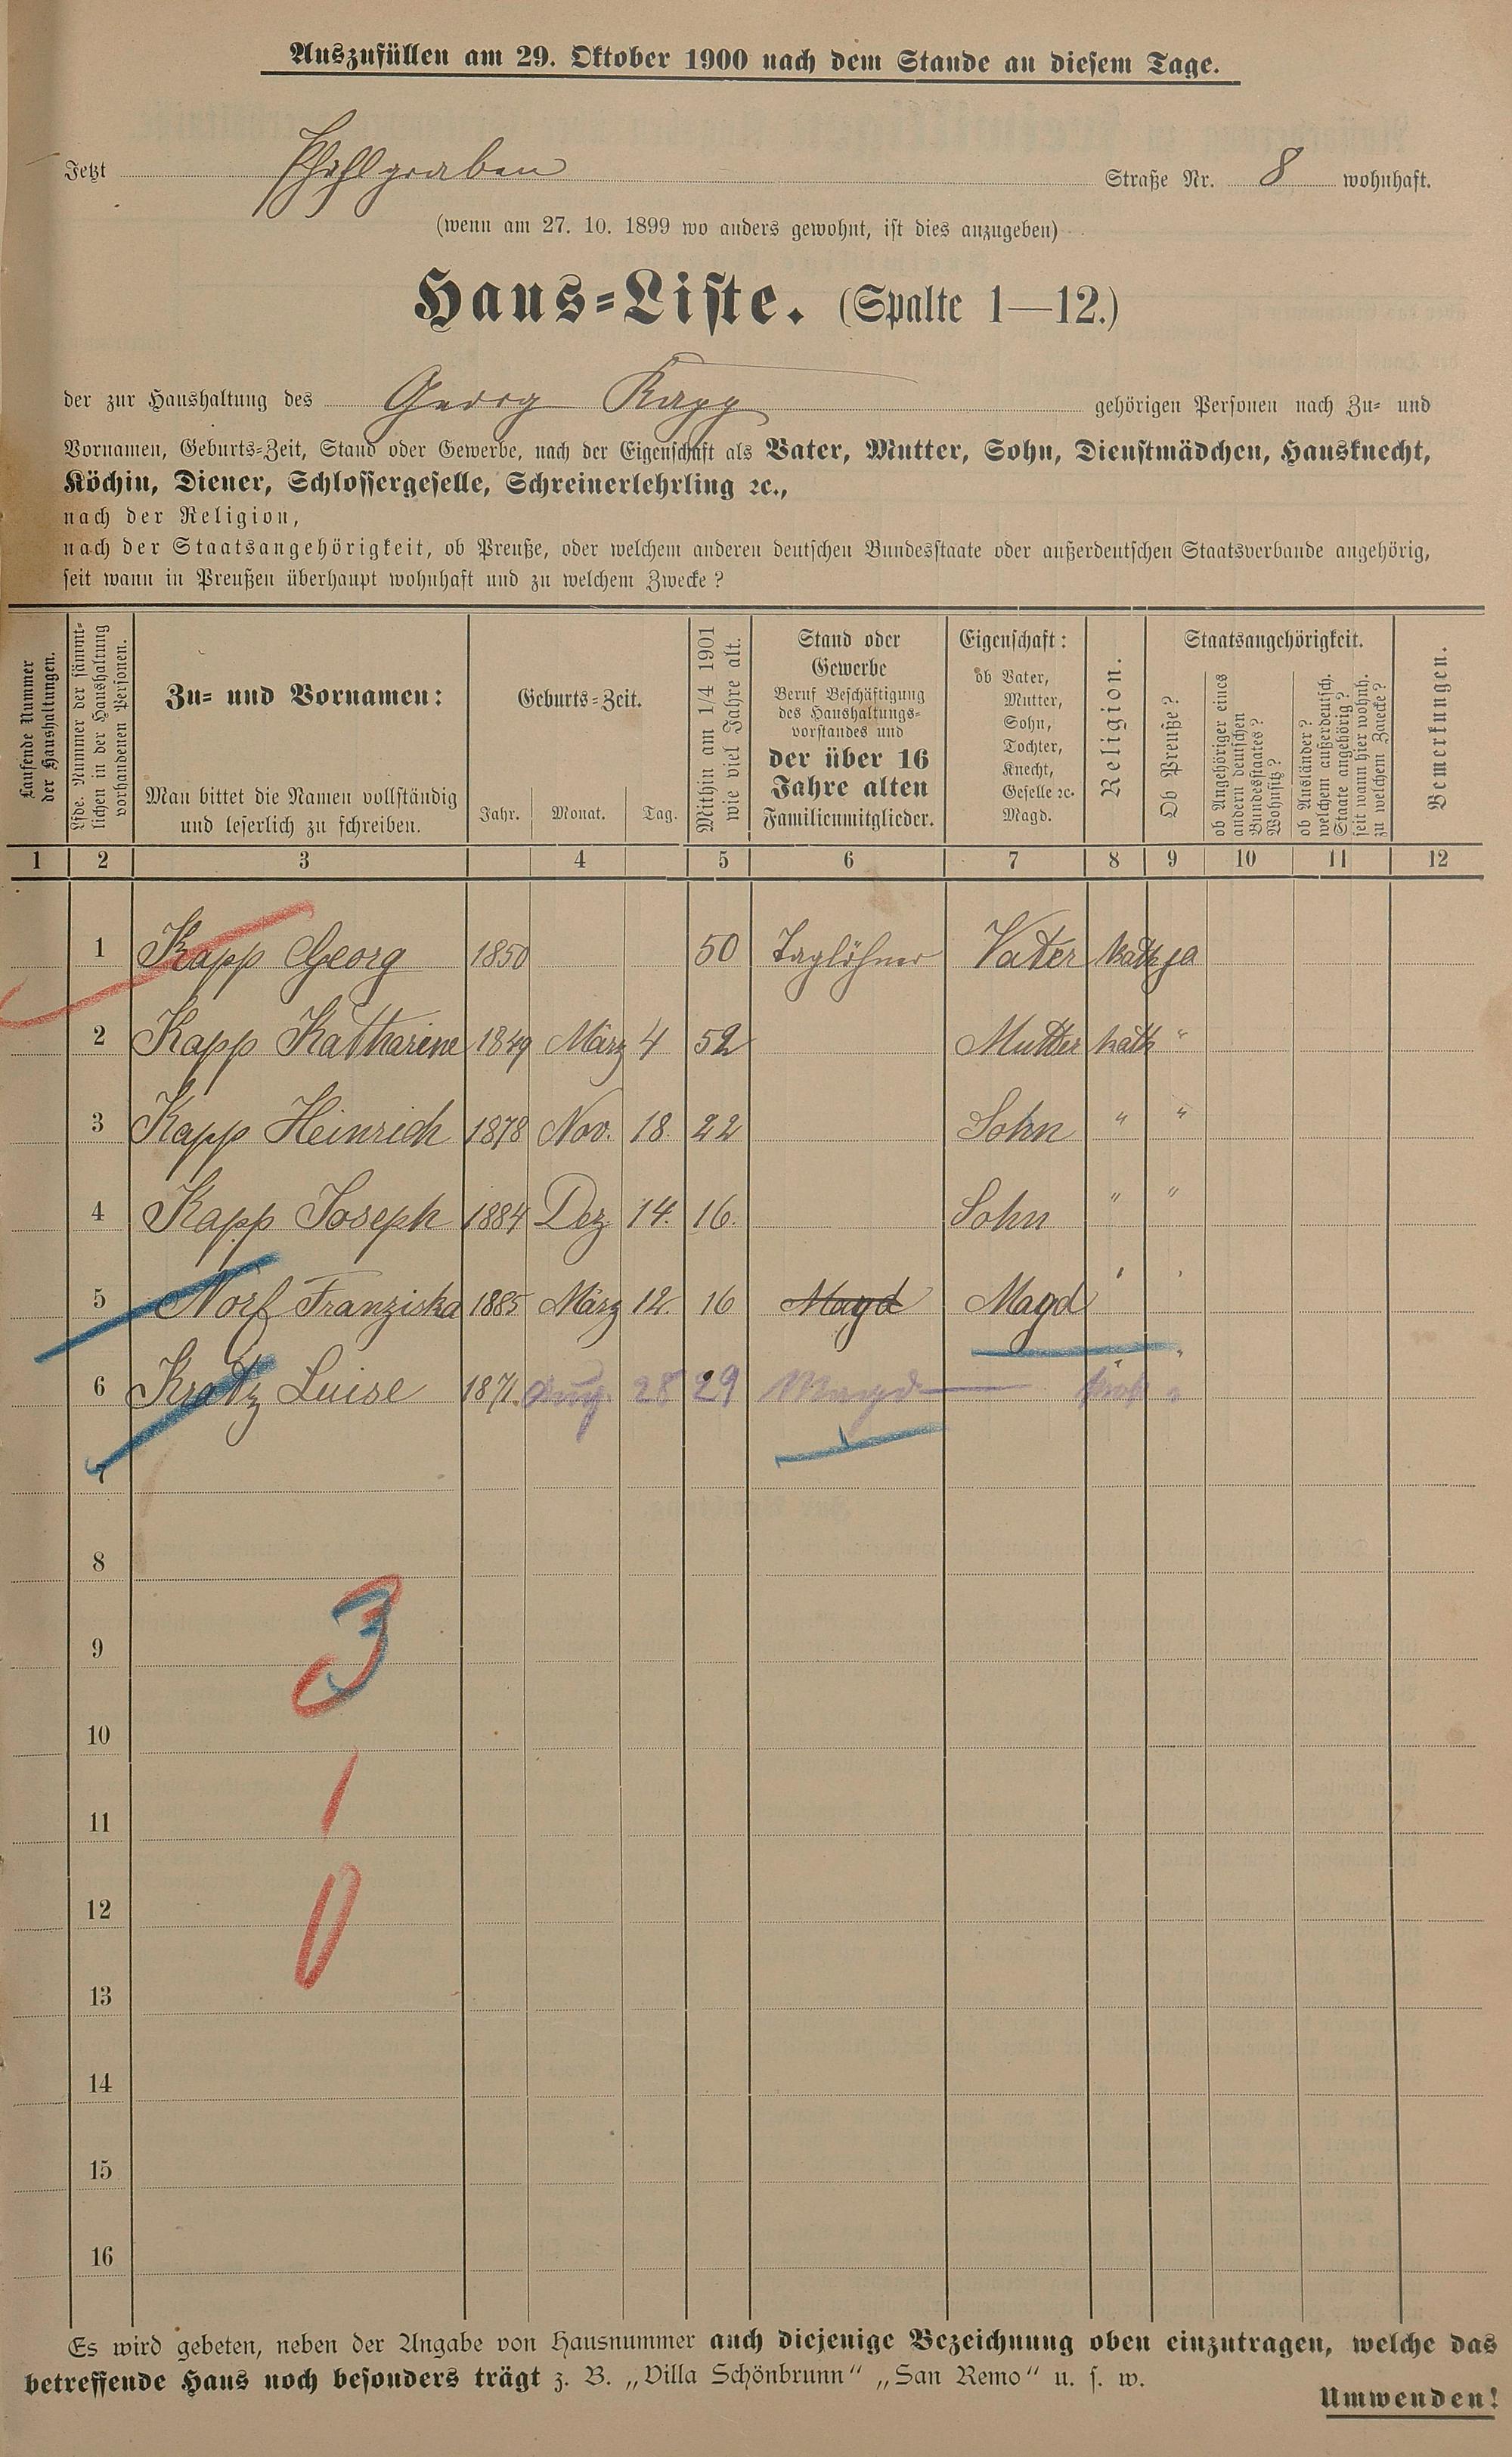 Auszufüllen am 29. Oktober 1900 nach dem Stande an diesem Tage.
Jetzt Pfahlgraben Straße Nr. 8 wohnhaft.
(wenn am 27. 10. 1899 wo anders gewohnt, ist dies anzugeben)
Haus=Liste. (Spalte 1—12.)
der zur Haushaltung des Georg Kapp gehörigen Personen nach Zu= und
Vornamen, Geburts=Zeit, Stand oder Gewerbe, nach der Eigenschaft als Vater, Mutter, Sohn, Dienstmädchen, Hausknecht,
Köchin, Diener, Schlossergeselle, Schreinerlehrling ꝛc.,
nach der Religion,
nach der Staatsangehörigkeit, ob Preuße, oder welchem anderen deutschen Bundesstaate oder außerdeutschen Staatsverbande angehörig,
seit wann in Preußen überhaupt wohnhaft und zu welchem Zwecke?
Laufende Nummer
der Haushaltungen.
Lfde. Nummer der sämmt-
lichen in der Haushaltung
vorhandenen Personen.
Zu= und Vornamen:
Man bittet die Namen vollständig
und leserlich zu schreiben.
Geburts=Zeit.
Jahr. Monat. Tag.
Mithin am 1/4 1901
wie viel Jahre alt.
Stand oder
Gewerbe
Beruf Beschäftigung
des Haushaltungs=
vorstandes und
der über 16
Jahre alten
Familienmitglieder.
Eigenschaft:
ob Vater,
Mutter,
Sohn,
Tochter,
Knecht,
Geselle ꝛc.
Magd.
Religion.
Staatsangehörigkeit.
Ob Preuße?
ob Angehöriger eines
andern deutschen
Bundesstaates?
Wohnsitz?
ob Ausländer?
welchem außerdeutsch.
Staate angehörig?
seit wann hier wohnh.
zu welchem Zwecke?
Bemerkungen.
1 2 3 4 5 6 7 8 9 10 11 12
1 Kapp Georg 1850 50 Taglöhner Vater kath ja
2 Kapp Katharine 1849 März 4 52 Mutter kath "
3 Kapp Heinrich 1878 Nov. 18. 22 Sohn " "
4 Kapp Joseph 1884 Dez 14. 16. Sohn " "
5 Norf Franziska 1885 März 12. 16 Magd Magd " "
6 Kratz Luise 1871. Aug. 28 29 Magd "
7
8
3
9
10
1
11
0
12
13
14
15
16
Es wird gebeten, neben der Angabe von Hausnummer auch diejenige Bezeichnung oben einzutragen, welche das
betreffende Haus noch besonders trägt z. B. „Villa Schönbrunn" „San Remo" u. s. w.
Umwenden!